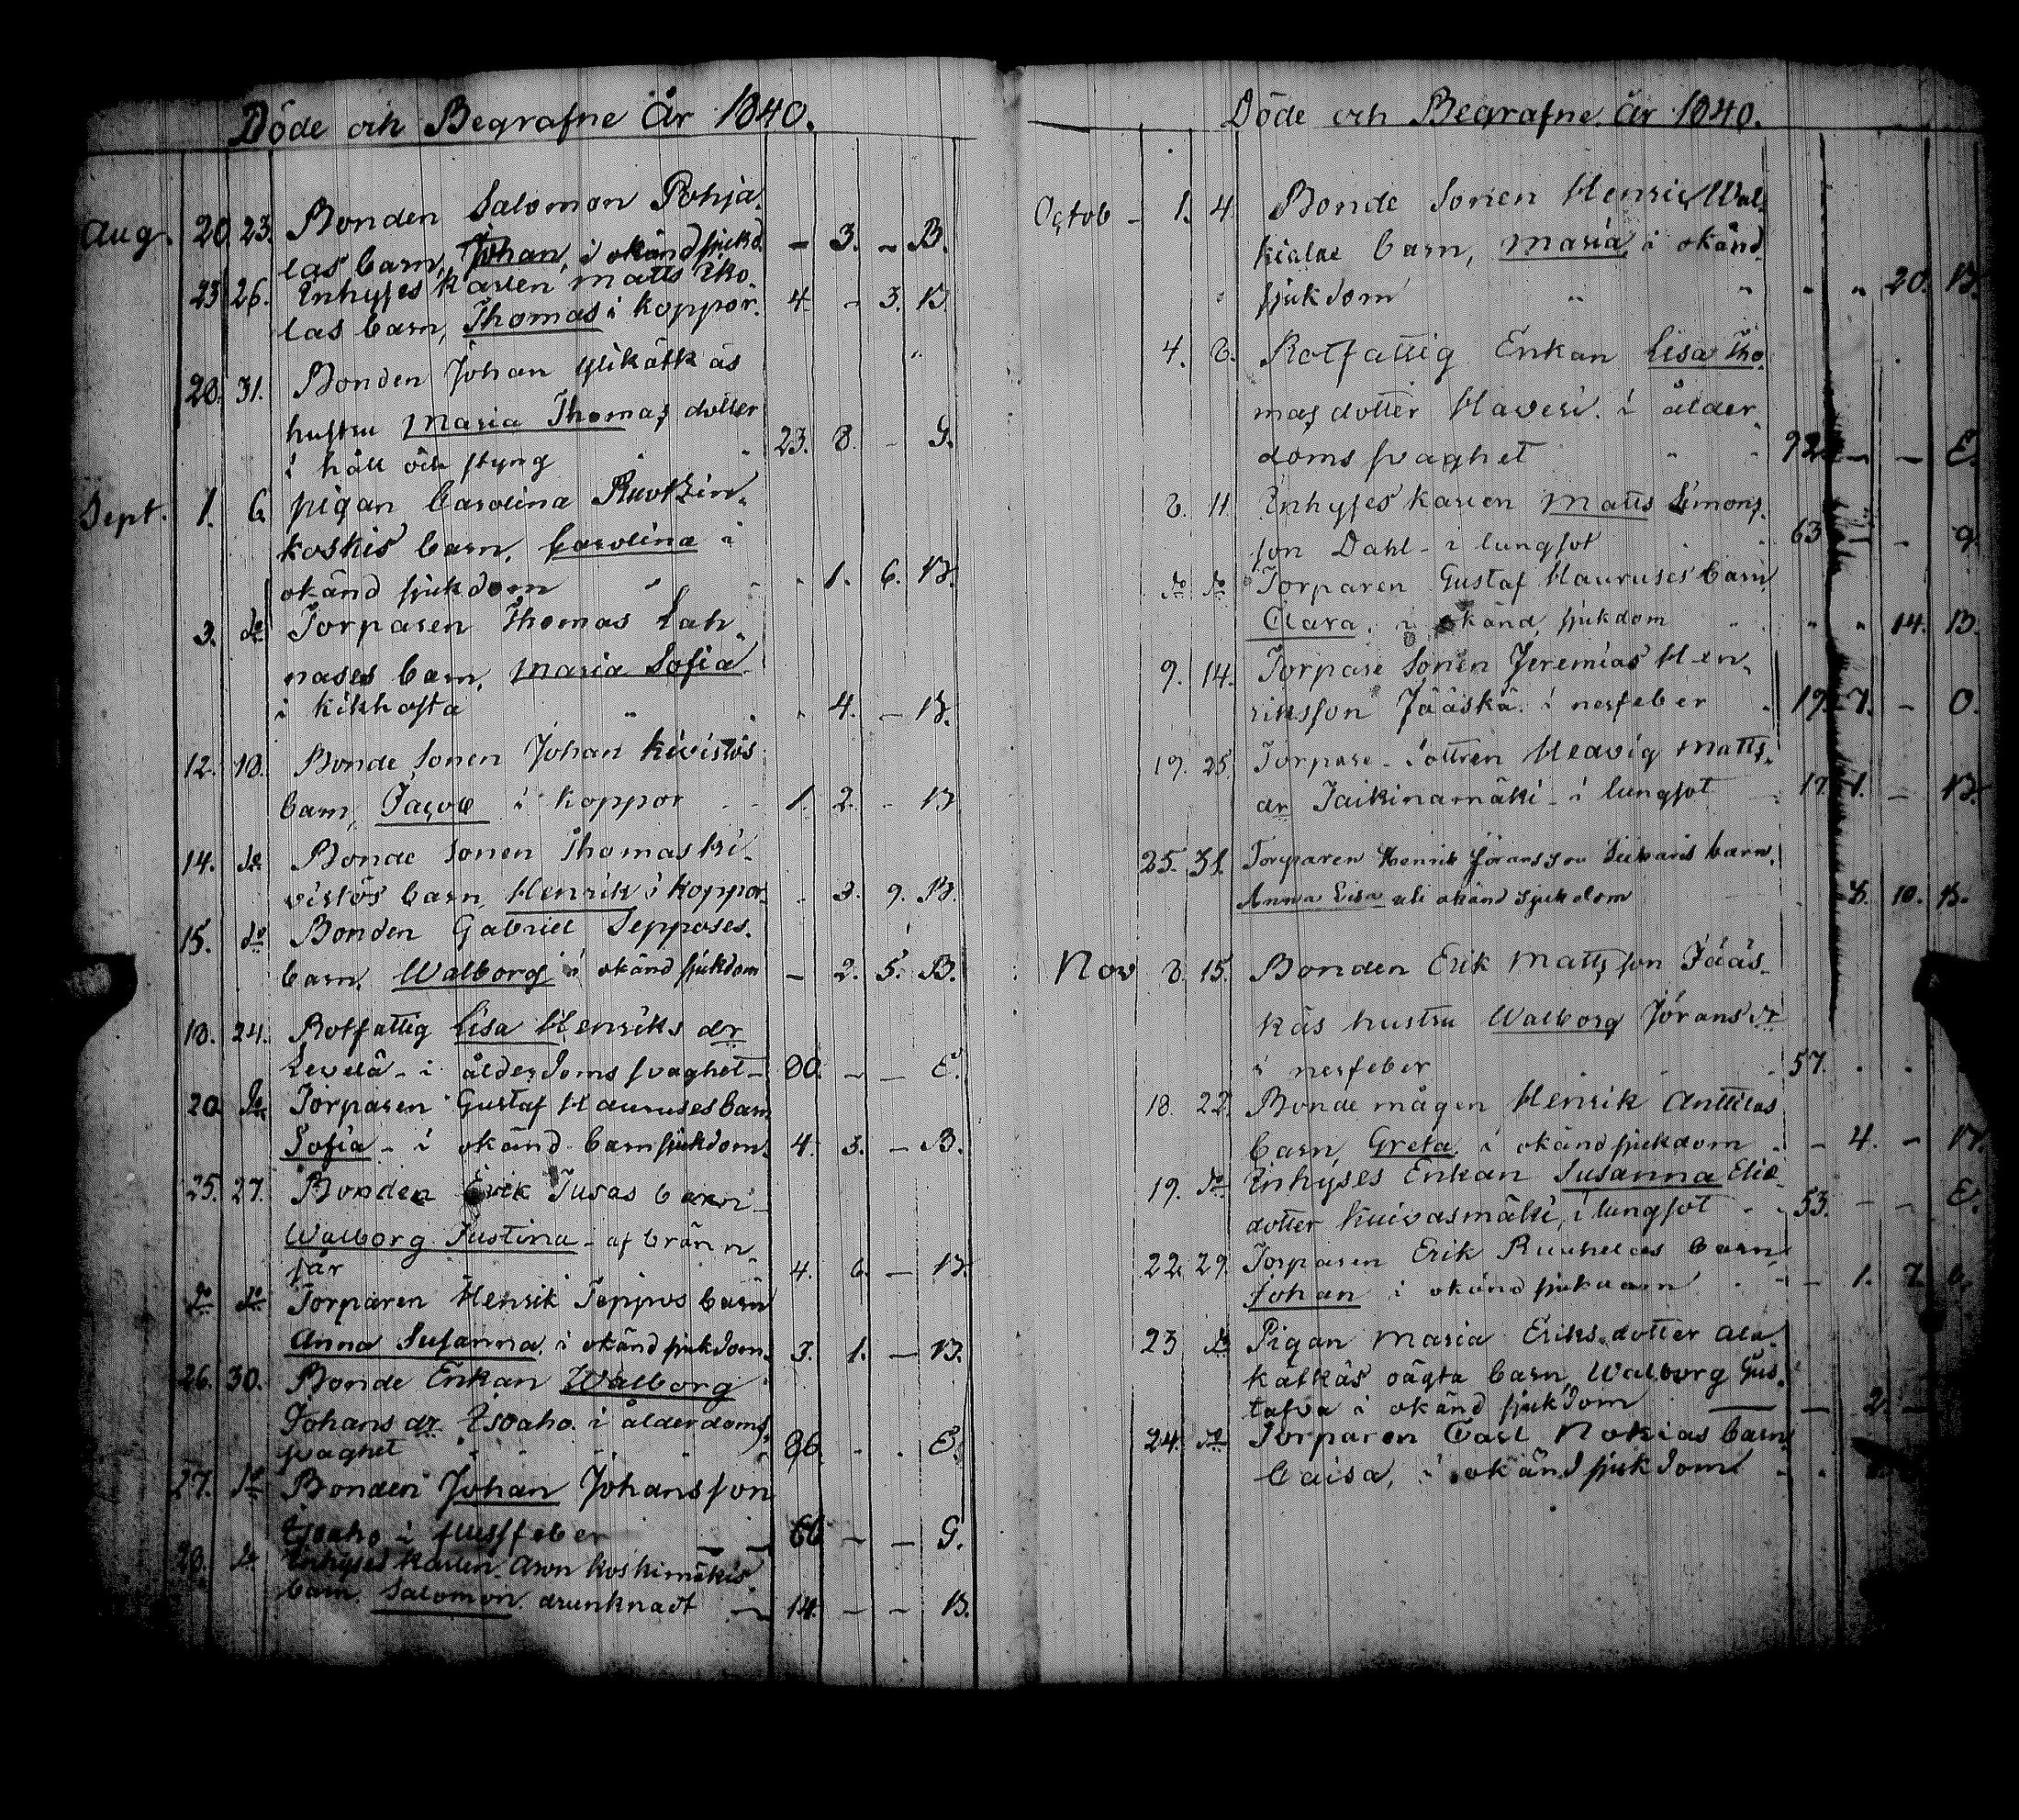 Döde och Begrafne År 1840.
Aug. 20 23. Bonden Salomon Pohja-
las barn, Johan, i okänd sjukd. – 3. – B.
23 26. Inhyses karlen Matts Eko-
las barn, Thomas i koppor. 4. – 3. B.
28. 31. Bonden Johan Ylikätkäs
hustru Maria Thomas dotter
i håll och styng 23. 8. – G.
Sept. 1. 6 pigan Carolina Ruotzin-
koskis barn, Carolina i
okänd sjukdom " 1. 6. B.
3. do Torparen Thomas Lah-
nases barn, Maria Sofia
i kikhosta " 4. – B.
12. 18. Bonde Sonen Johan Kivistös
barn, Jacob i koppor 1. 2. – B
14. do Bonde Sonen Thomas Ki-
vistös barn, Henrik i koppor. . 3. 9. B.
15. do Bonden Gabriel Sepposes.
barn, Walborg i okänd sjukdom – 2. 5. B.
18. 24. Rotfattig Lisa Henriks dr
Levelä – i ålderdoms svaghet – 80. – – E.
20 do Torparen Gustaf Hauruses barn
Sofia – i okänd barnsjukdom. 4. 3. – B.
25. 27. Bonden Erik Jusas barn
Walborg Justina – af bränn-
sår 4. 6. – B.
do do Torparen Henrik Teppos barn
Anna Susanna, i okänd sjukdom. 3. 1. – B.
26. 30. Bonde Enkan Walborg
Johans dr Isoaho. i ålderdoms
svaghet 86. . . E.
27. do Bonden Johan Johansson
Isoaho i flussfeber 66 – – G.
28. do Inhyses karlen Aron Koskimäkis
barn. Salomon. drunknadt – 14. – – B.
Döde och Begrafne År 1840.
Octob – 1. 4. Bonde Sonen Henric Wal-
barn, Maria, i okänd
sjukdom " " 20. B.
4. 8. Rotfattig Enkan Lisa Tho-
mas dotter Haveri. i ålder-
doms svaghet 92 – – E.
8. 11. Inhyses karlen Matts Simons-
son Dahl – i lungsot 63 – – g.
do do Torparen Gustaf Hauruses barn
Clara. i okänd sjukdom " " 14. B.
9. 14. Torpare Sonen Jeremias Hen-
riksson Jääskä. i nerfeber 19. 7. – O.
19. 25. Torpare – Dottren Hedvig Matts-
dr Taikinamäki – i lungsot 17. 1. – B.
25. 31. Torparen Henrik Jöransson barn,
Anna Lisa uti okänd sjukdom 8. 10. B.
Nov 8. 15. Bonden Erik Matts son Jääs-
käs hustru Walborg Jörans dr
i nerfeber 57. . .
18. 22. Bonde mågen Henrik Anttilas
barn, Greta, i okänd sjukdom – 4. – B.
19. do Inhyses Enkan Susanna Elie-
dotter Kuivasmäki, i lungsot 53. – – E.
22. 29. Torparen Erik Ruuhelas barn
Johan i okänd sjukdom – 1. 7. B.
23 do Pigan Maria Eriksdotter Ala-
kätkäs oägta barn, Walborg Gus-
tafva i okänd sjukdom – 2. –
24. do Torparen Carl Nokias barn
Caisa, i okänd sjukdom